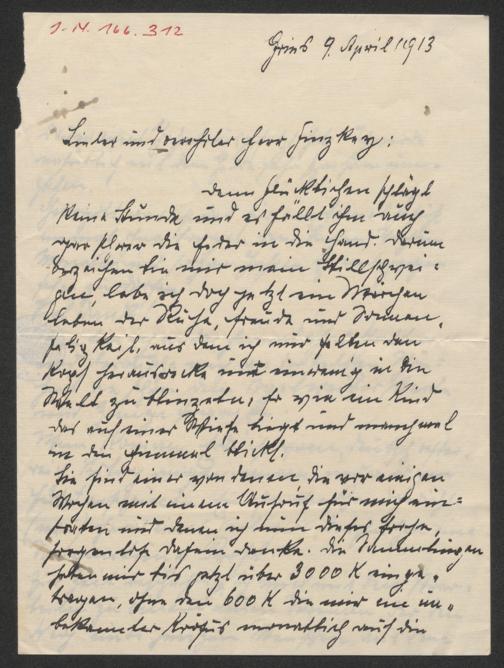 J. N. 166.312
Gries 9. April 1913
Lieber und verehrter Herr Ginzkey:
Dem Glücklichen schlägt
keine Stunde und es fällt ihm auch
gar schwer die Feder in die Hand. Darum
verzeihen Sie mir mein Stillschwei-
gen, lebe ich doch jetzt ein Märchen
leben der Ruhe, Freude und Sonnen,
aus dem ich nur selten den
Kopf herausstecke um ein wenig in die
Welt zu blinzeln, so wie ein Kind
das auf einer Wiese liegt und manchmal
in den Himmel blickt.
Sie sind einer von denen, die vor einigen
Wochen mit einem Aufruf für mich ein-
traten und denen ich nun dieses frohe,
sorgenlose Dasein danke. Die Sammlungen
haben mir bis jetzt über 3000 K einge-
tragen, ohne den 600 K die mir ein un-
bekannter Krösus monatlich auf die